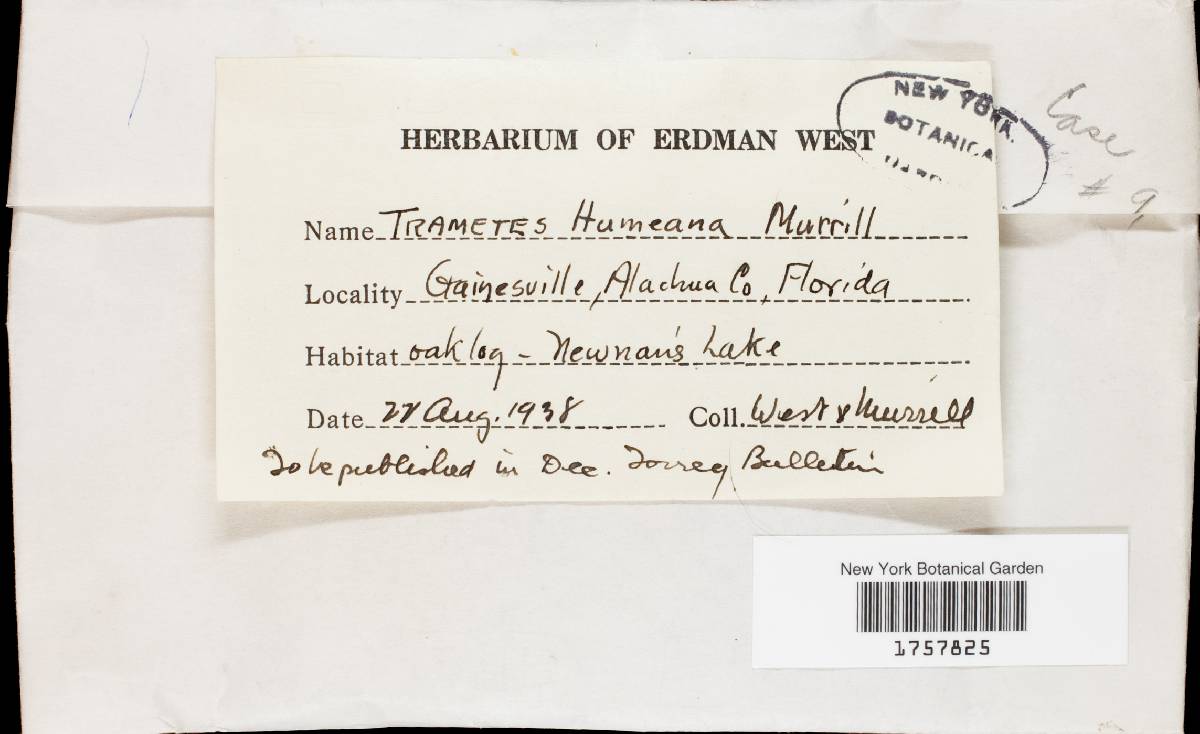 HERBARIUM OF ERDMAN WEST
NEW YORK
BOTANICA
Case
# 9,
Name TRAMETES Humeana Murrill
Locality Gainesville, Alachua Co, Florida
Habitat oak log - Newnan's Lake
Date Aug. 1938 Coll. West & Murrill
To be published in Dec. Torrey Bulletin
New York Botanical Garden
1757825